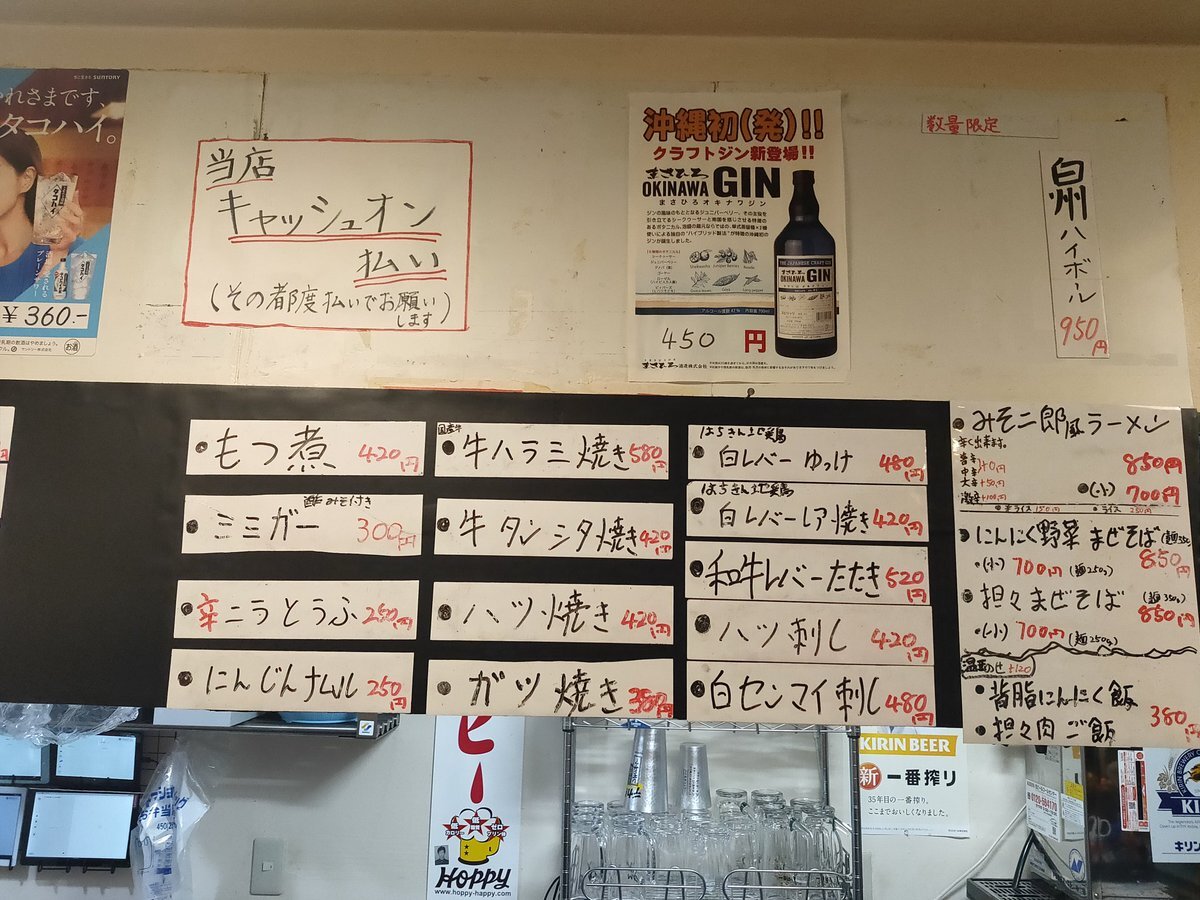 SUNTORY
れさまです、
タコハイ。
¥360.-
お酒
当店
キャッシュオン
払い
(その都度払いでお願い
します)
沖縄初(発)!!
クラフトジン新登場!!
まさひろ
OKINAWA GIN
まさひろオキナワジン
450円
数量限定
白州ハイボール
950円
もつ煮 420円
酢みそ付き
ミミガー 300円
辛ニラとうふ 250円
にんじんナムル 250円
国産牛
牛ハラミ焼き 580円
牛タンシタ焼き 420円
ハツ焼き 420円
ガツ焼き 380円
はちきん地鶏
白レバーゆっけ 480円
はちきん地鶏
白レバーレア焼き 420円
和牛レバーたたき 520円
ハツ刺し 420円
白センマイ刺し 480円
みそ二郎風ラーメン
辛く出来ます。
850円
中辛
大辛 +50円
激辛 +100円
(小) 700円
半ライス 150円
ライス 250円
にんにく野菜まぜそば
850円
(小) 700円 (麺250g)
担々まぜそば (麺350g)
850円
(小) 700円 (麺250g)
+120
背脂にんにく飯
担々肉ご飯
380円
ピー
HOPPY
www.hoppy-happy.com
KIRIN BEER
新 一番搾り
35年目の一番搾り。
ここまでおいしくなりました。